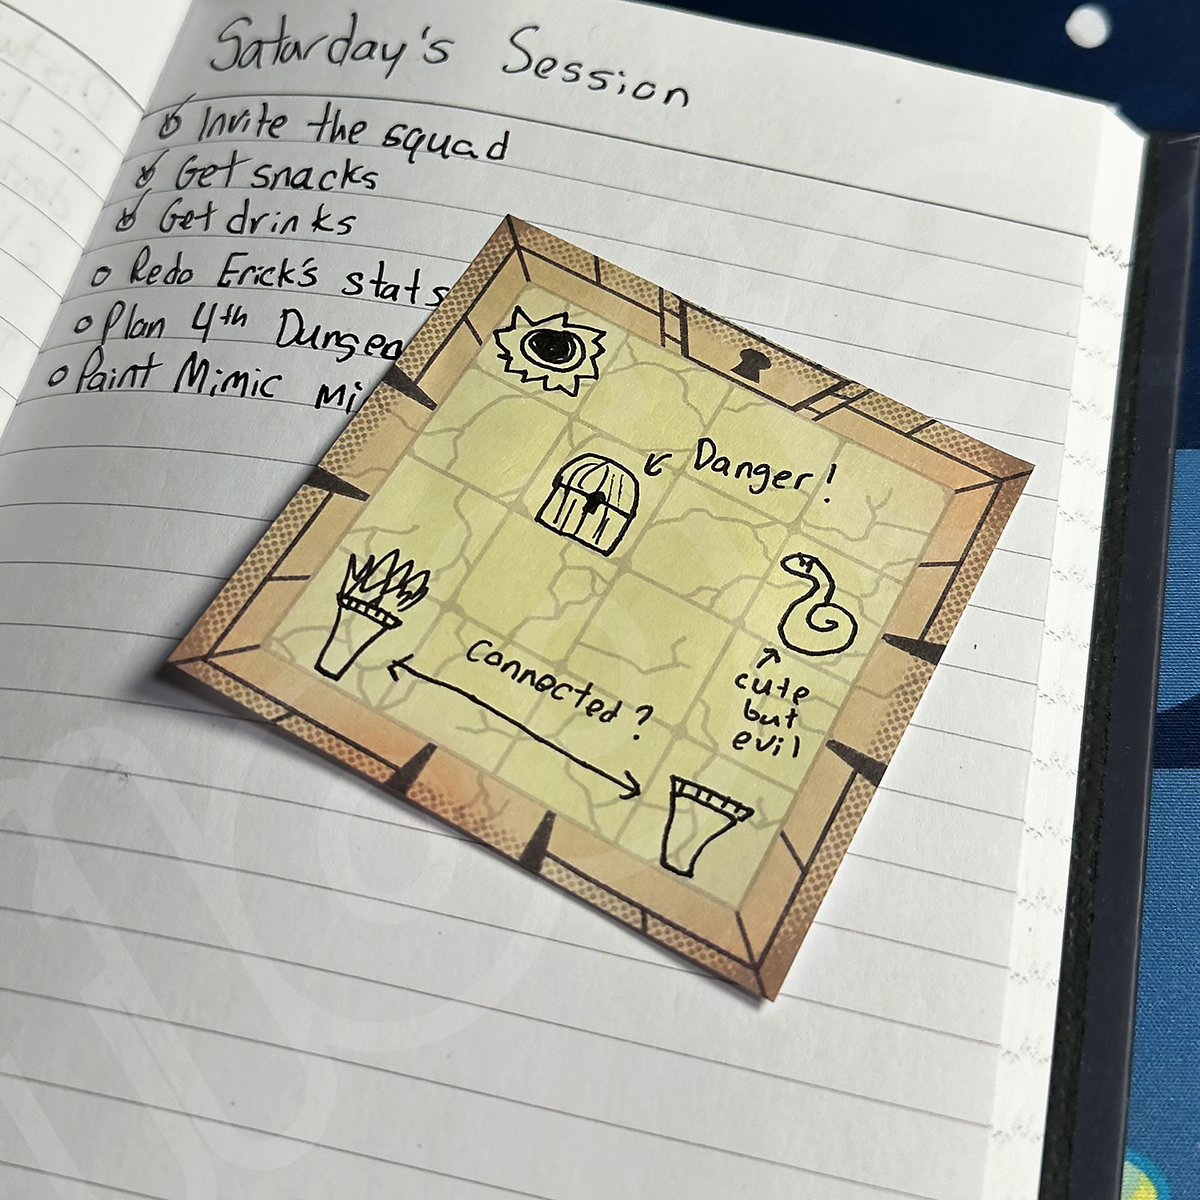 Saturday's Session
Invite the squad
Get snacks
Get drinks
Redo Erick's stats
Plan 4th
Paint Mimic
Danger!
cute
but
evil
Connected?